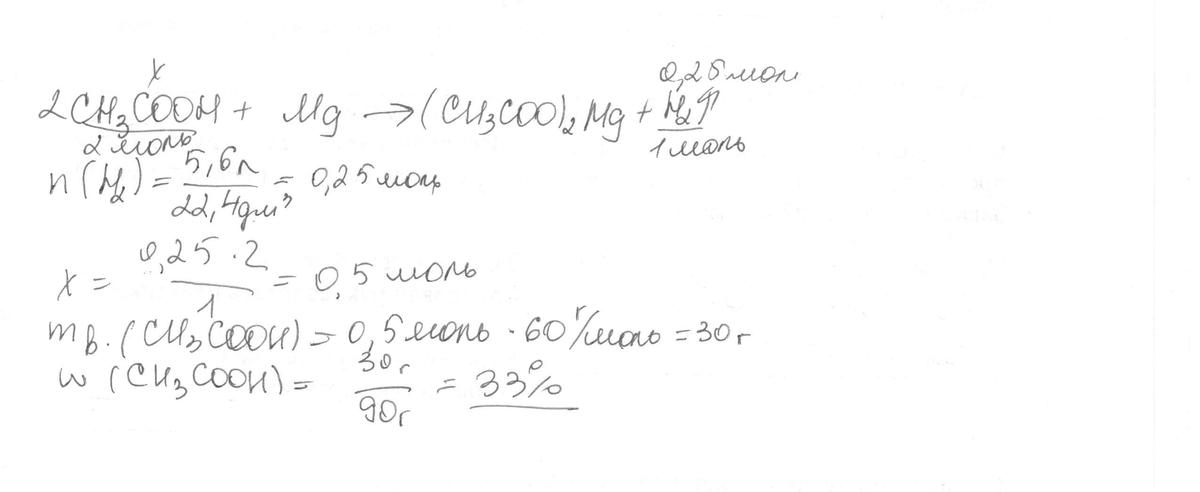 x 0,25 мол
2CH₃COOH + Mg → (CH₃COO)₂Mg + H₂↑
2 моль 1 моль
n (H₂) = 5,6л / 22,4дм³ = 0,25 моль
x = 0,25 · 2 / 1 = 0,5 моль
m в. (CH₃COOH) = 0,5 моль · 60 г/моль = 30 г
w (CH₃COOH) = 30 г / 90 г = 33%